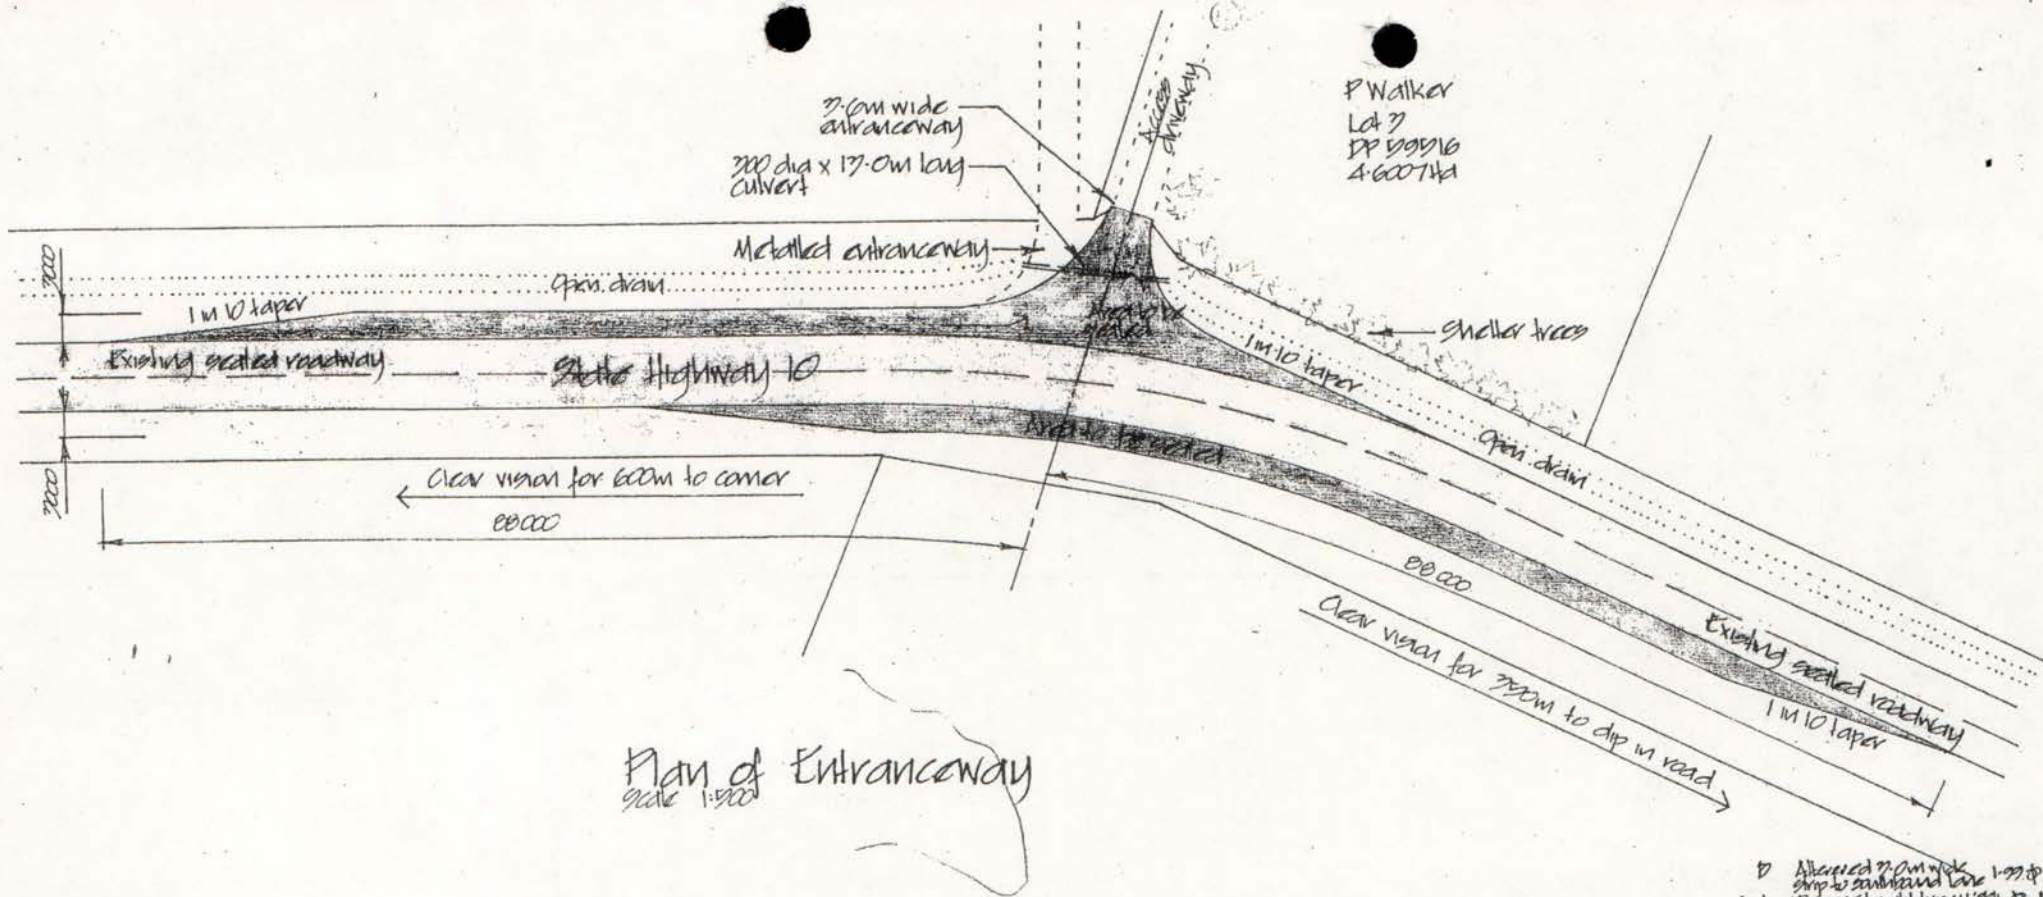 3.6m wide
entranceway
300 dia x 13.0m long
culvert
Access
driveway
P Walker
Lot 3
DP 59516
4.6007Ha
Metalled entranceway
3000
Open drain
1 in 10 taper
Area to be
sealed
Shelter trees
Existing sealed roadway
State Highway 10
1 in 10 taper
Area to be sealed
Open drain
Clear vision for 600m to corner
3000
88000
88000
Clear vision for 350m to dip in road
Existing sealed roadway
1 in 10 taper
Plan of Entranceway
Scale 1:500
D Altered 3.0m wide 1-99
strip to southbound lane